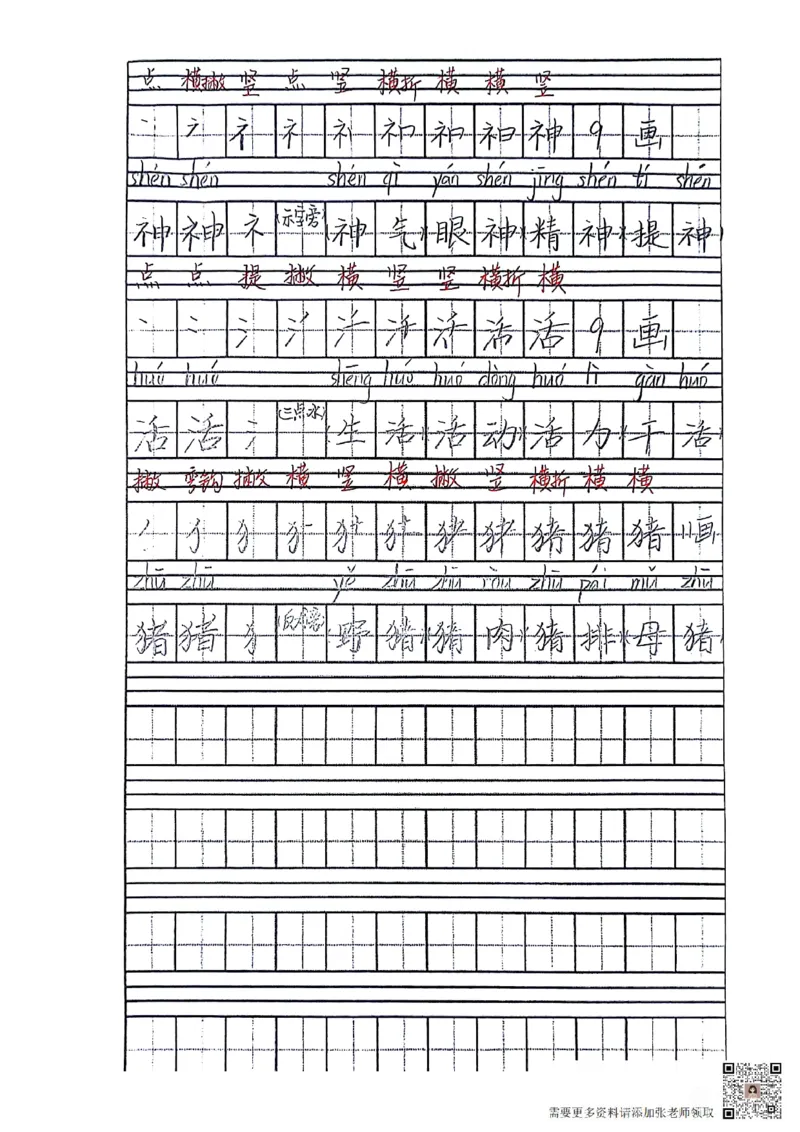 点 横撇 竖 点 竖 横折 横 横 竖
丶 礻 礻 礻 礻 初 衵 衵 神 9 画
shén shén shén qì yǎn shén jīng shén tí shén
神 神 礻 (示字旁) 神 气 (眼 神) (精 神) (提 神)
点 点 提 撇 横 竖 竖 横折 横
丶 冫 氵 氵 汗 汗 活 活 活 9 画
huó huó shēng huó huó dòng huó lì gàn huó
活 活 氵 (三点水) (生 活) (活 动) (活 力) (干 活)
撇 弯钩 撇 横 竖 横 撇 竖 横折 横 横
丿 犭 犭 犭 犭 犭 猪 猪 猪 猪 猪 11画
zhū zhū yě zhū zhū ròu zhū pái mǔ zhū
猪 猪 犭 (反犬旁) (野 猪) (猪 肉) (猪 排) (母 猪)
需要更多资料请添加张老师领取